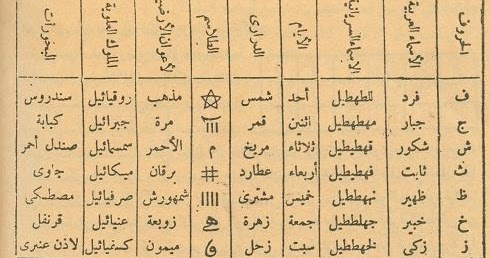 الحروف الأسماء العربية الأسماء السريانية الأيام الدرارى الطلاسم الأعوان الأرضية الملوك العلوية البخورات
ف فرد للطهطيل أحد شمس مذهب روقيائيل سندروس
ج جبار مهطهطيل اثنين قمر مرة جبرائيل كبابة
ش شكور قهطيطيل ثلاثاء مريخ م الأحمر سمسمائيل صندل أحمر
ث ثابت فهطبطيل أربعاء عطارد # برقان ميكائيل جاوى
ظ ظهير نهططيل خميس مشترى |||| شمهورش صرفيائيل مصطكى
خ خبير جهلططيل جمعة زهرة ه زوبعة عنيائيل قرنفل
ز زكى لخهططيل سبت زحل و ميمون كسفيائيل لاذن عنبرى